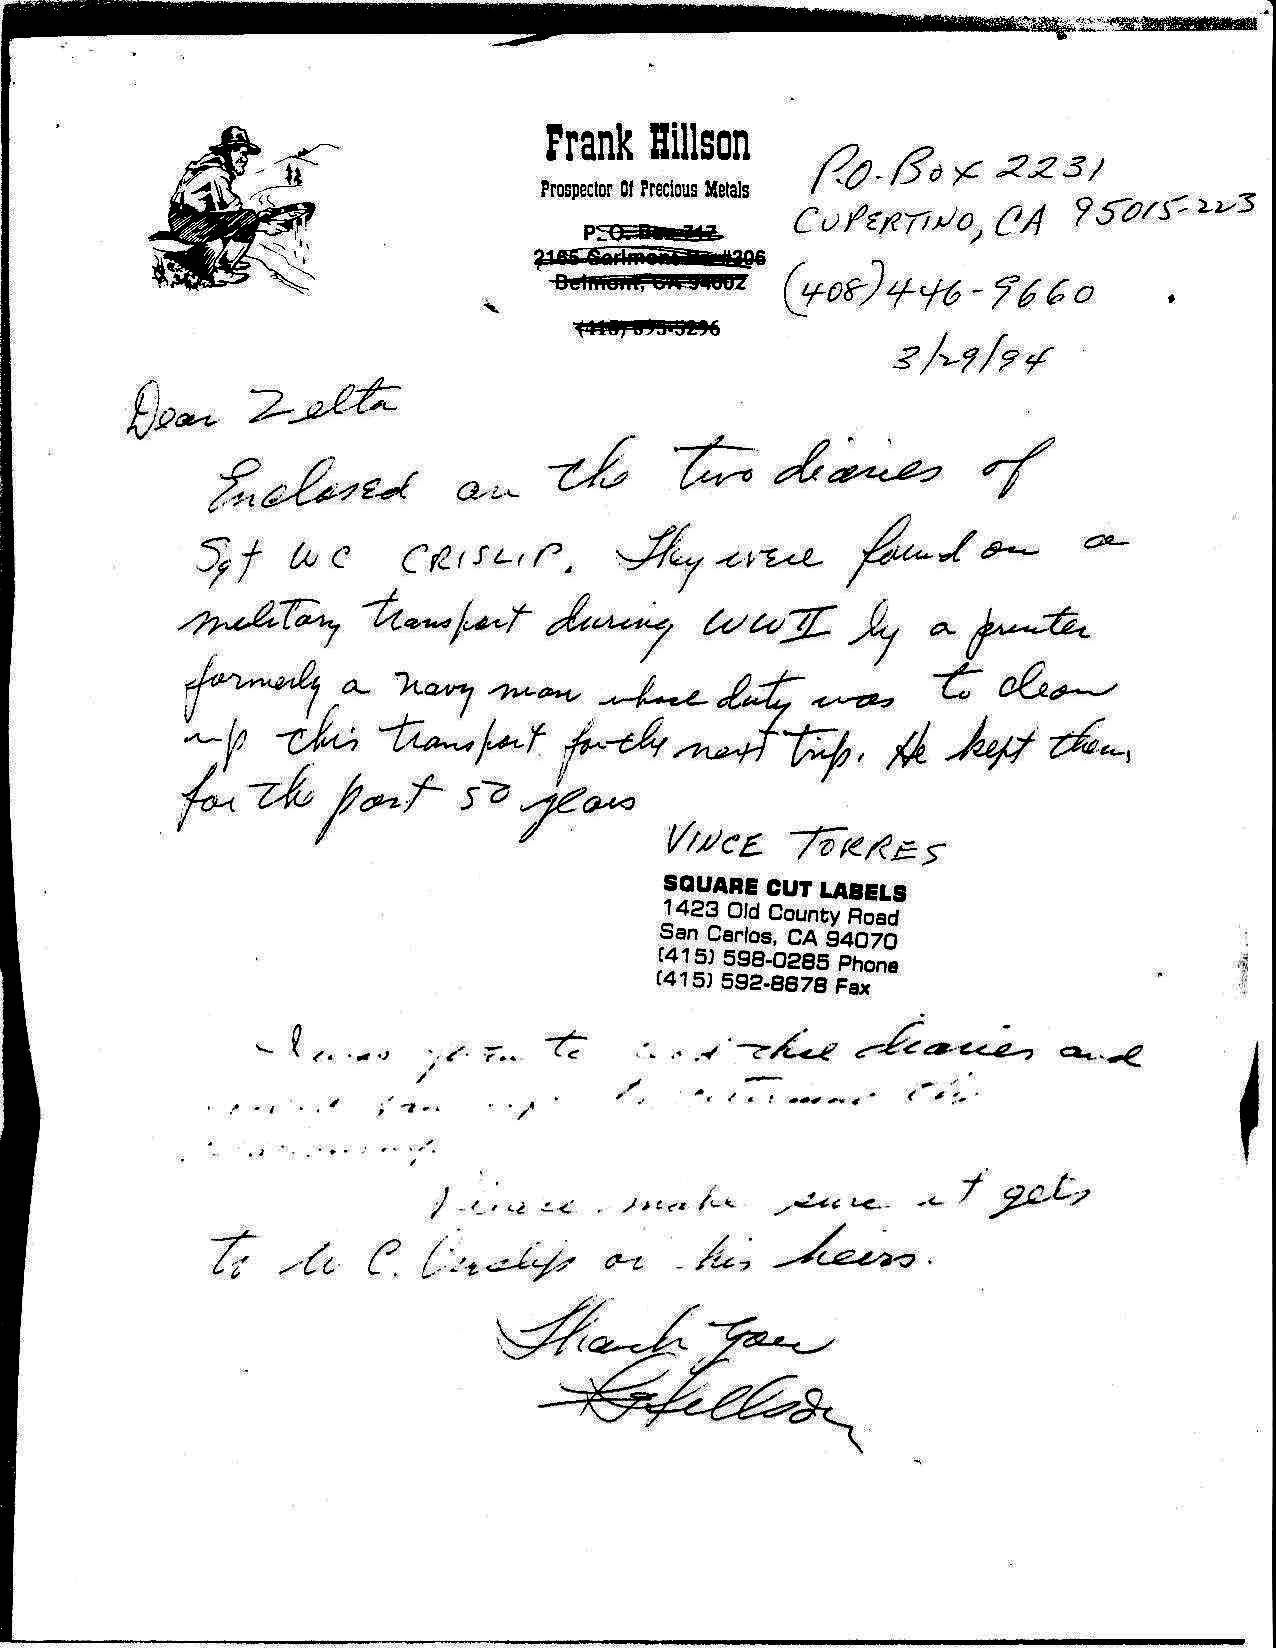 Frank Hillson
Prospector Of Precious Metals
P.O. Box 717
2165 #206
Belmont, CA 94002
(415) 5296
P.O. Box 2231
CUPERTINO, CA 95015-223
(408) 446-9660
3/29/94
Dear Zelta
Enclosed are the two diaries of
Sgt WC CRISLIP. They were found on a
military transport during WWII by a printer
formerly a navy man whose duty was to clean
up this transport for the next trip. He kept them
for the past 50 years
VINCE TORRES
SQUARE CUT LABELS
1423 Old County Road
San Carlos, CA 94070
(415) 598-0285 Phone
(415) 592-8678 Fax
I was to diaries and
Please make sure it gets
to W C. Crislip or his heirs.
Thank you
Hillson